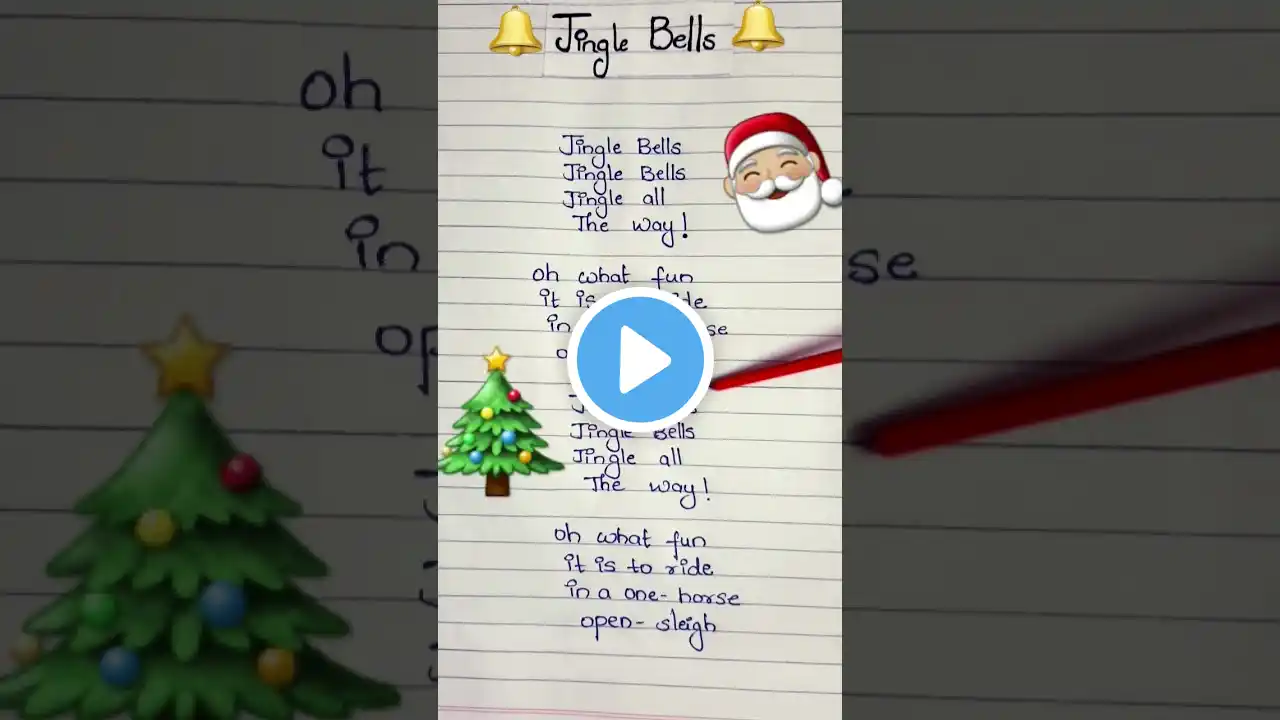 Jingle Bells
Jingle Bells
Jingle Bells
Jingle all
The way!
oh what fun
it is
in
Jingle Bells
Jingle all
The way!
oh what fun
it is to ride
in a one-horse
open-sleigh